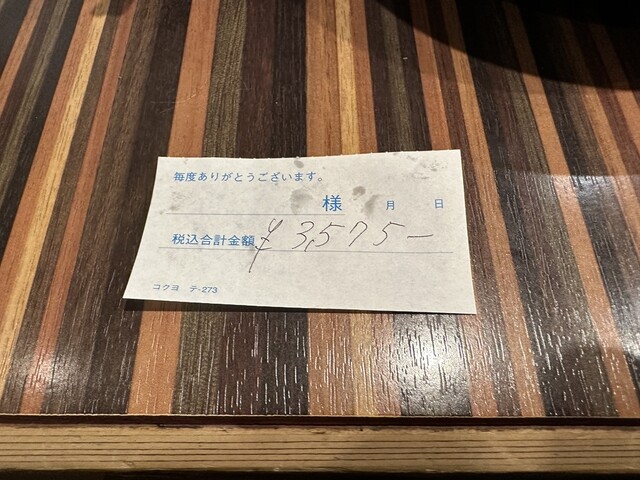 毎度ありがとうございます。
様 月 日
税込合計金額 ¥3,575-
コクヨ テ-273